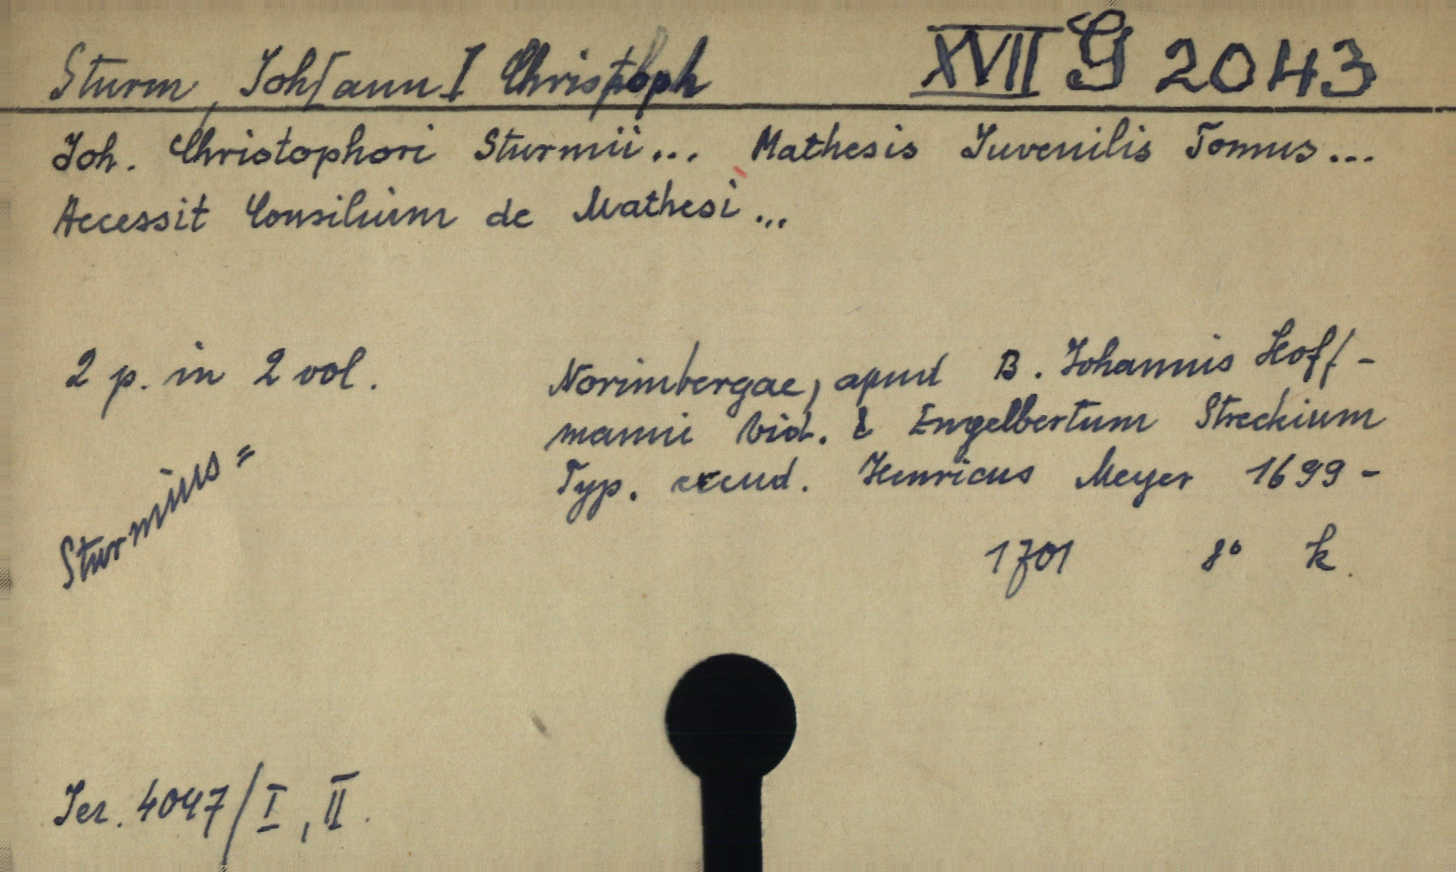 Sturm, Joh[ann] Christoph XVII G 2043
Joh. Christophori Sturmii... Mathesis Juvenilis Tomus...
Accessit Consilium de Mathesi...
2 p. in 2 vol. Norimbergae, apud B. Johannis Hoff-
manni vid. & Engelbertum Streckium
Typ. excud. Henricus Meyer 1699-
1701 8° k.
Sturmius=
Jer. 4047/I, II.